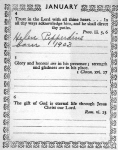 JANUARY
4
Trust in the Lord with all thine heart . . . In
all thy ways acknowledge him, and he shall direct
thy paths.
Prov. iii. 5, 6
Helen
Born 1903
5
Glory and honour are in his presence; strength
and gladness are in his place.
1 Chron. xvi. 27
6
The gift of God is eternal life through Jesus
Christ our Lord.
Rom. vi. 23